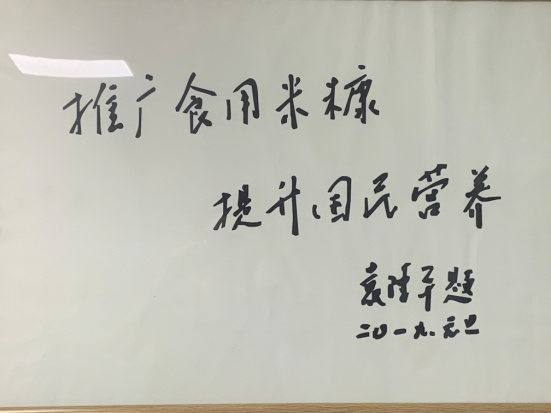 推广食用米糠
提升国民营养
袁隆平题
二〇一九.元旦